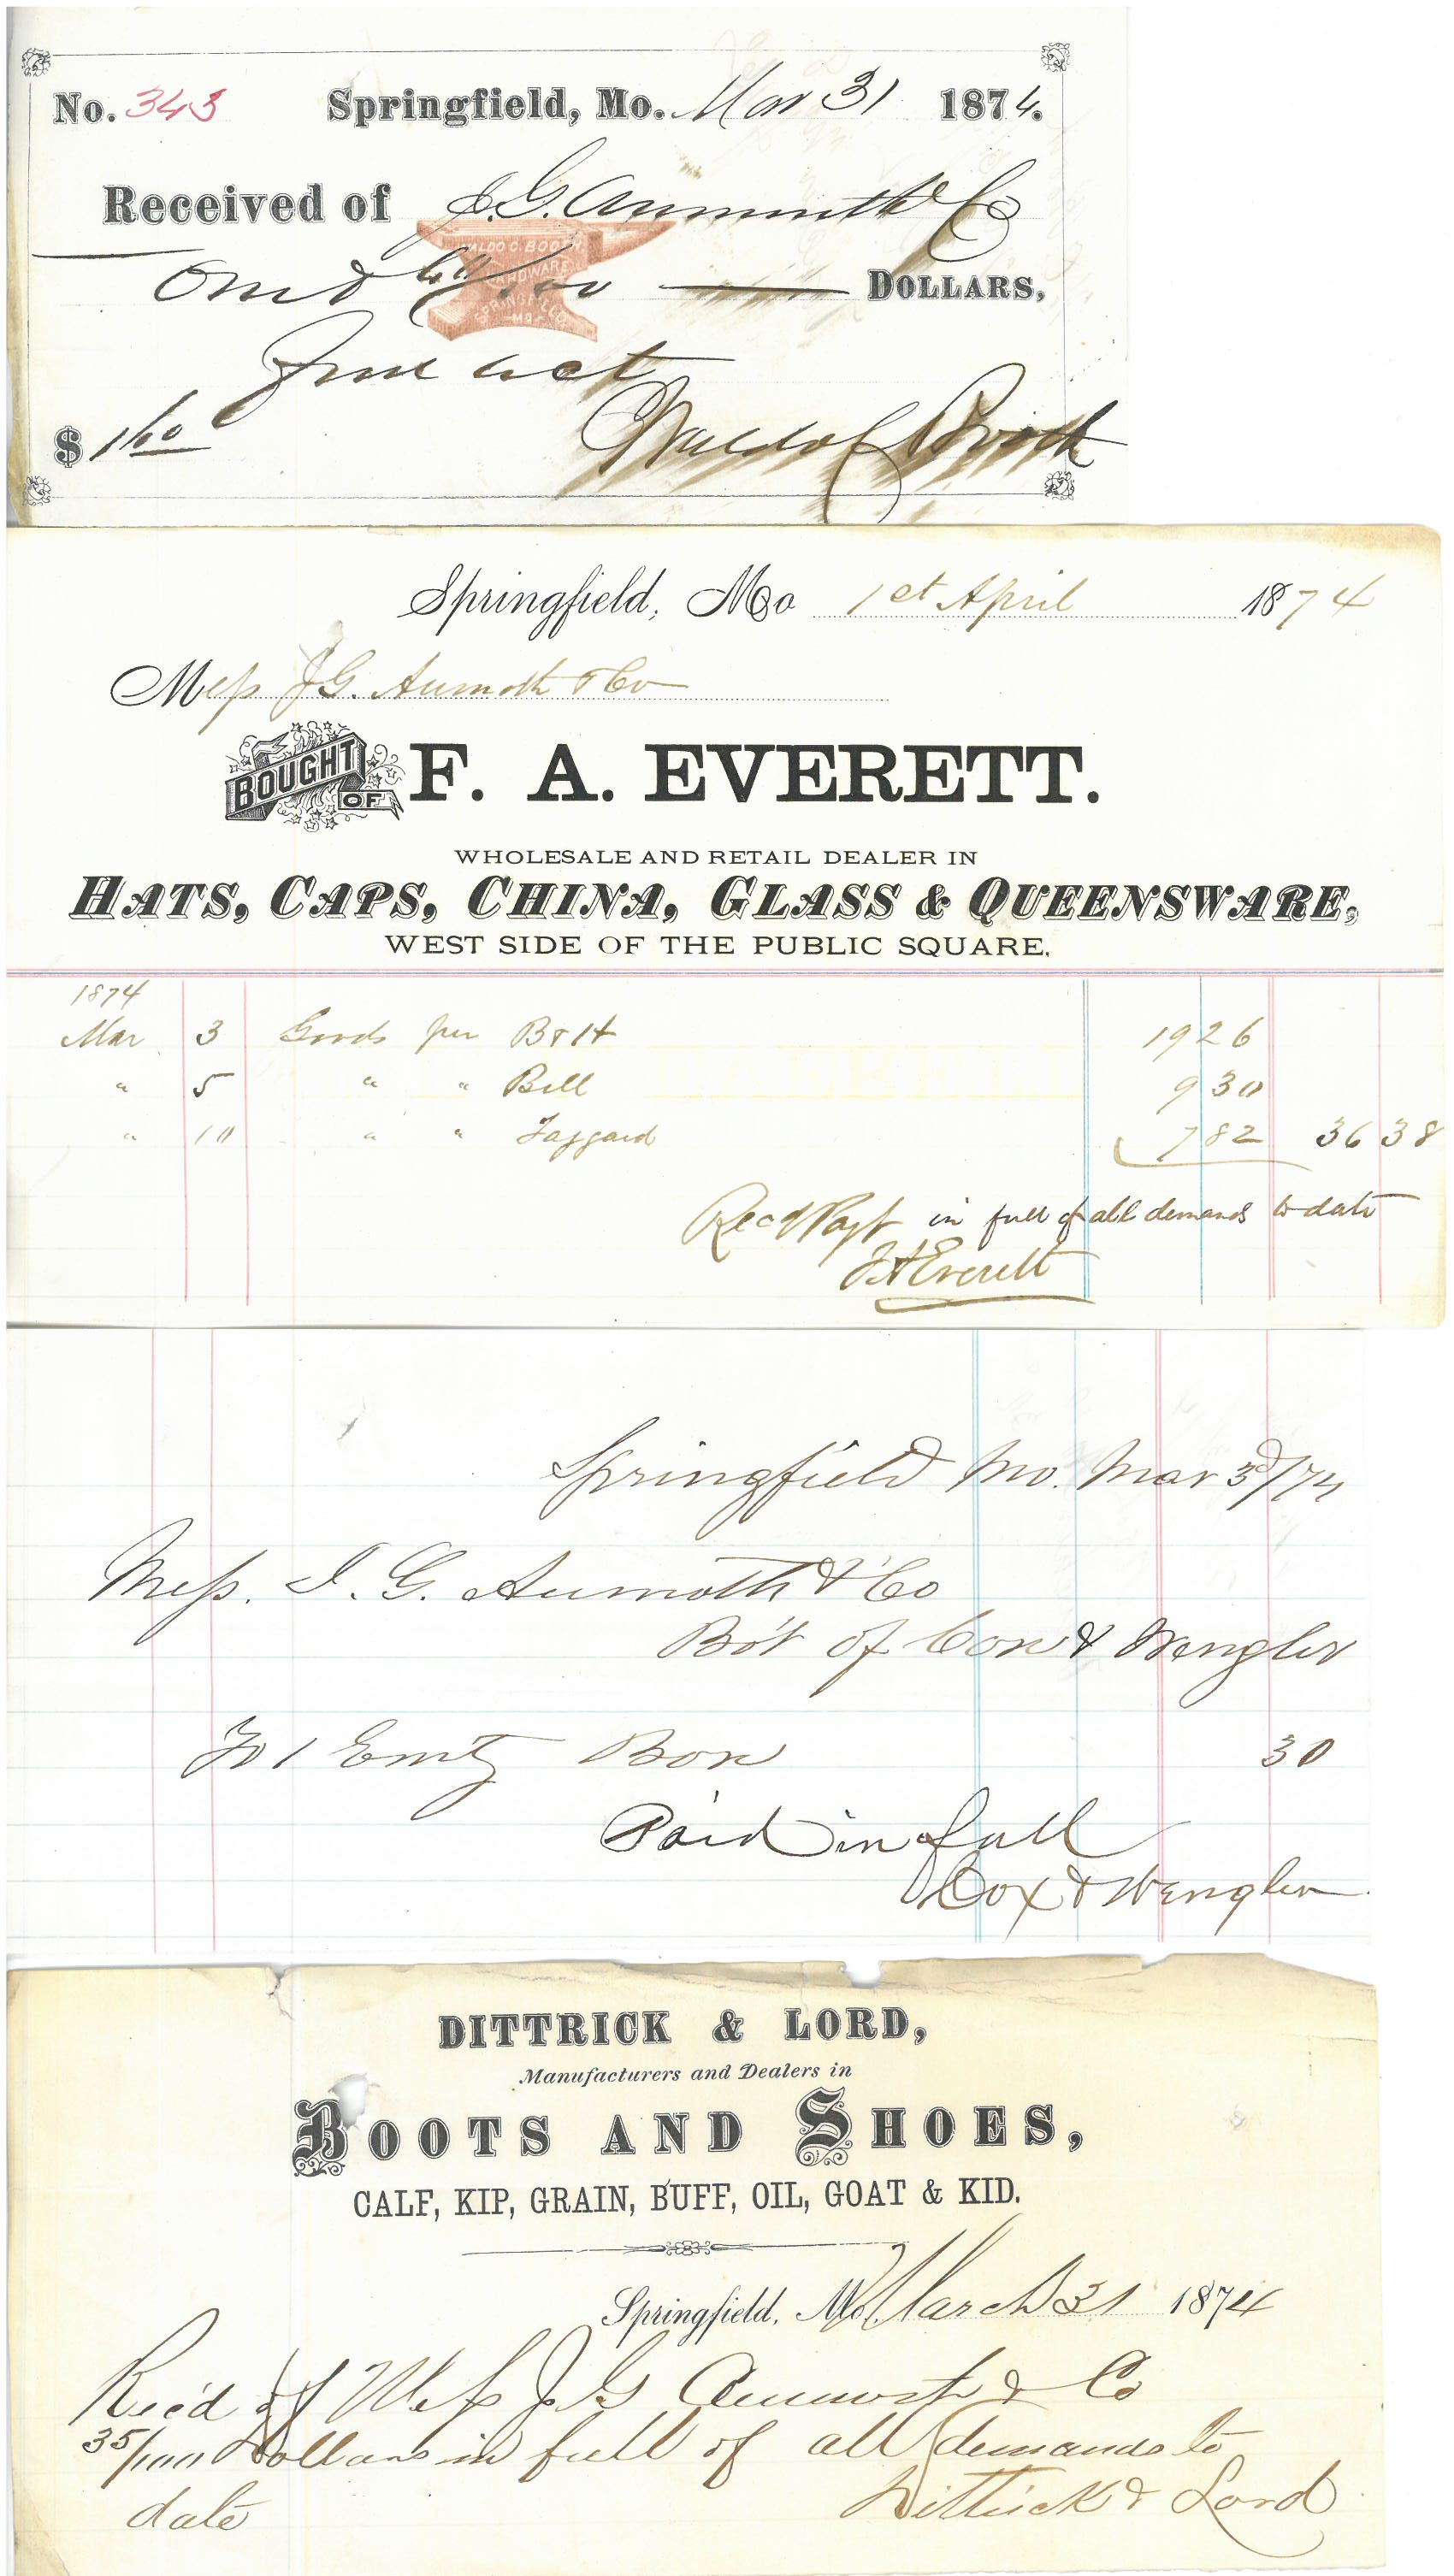 No. 343 Springfield, Mo. Mar 31 1874.
Received of J. G. Aumoth & Co
WALDO C. BOOTH.
HARDWARE
SPRINGFIELD
MO.
One & 60/100 DOLLARS,
In full acct
$ 1 60
Waldo C Booth
Springfield, Mo 1st April 1874
Mess J G. Aumoth & Co
BOUGHT OF F. A. EVERETT.
WHOLESALE AND RETAIL DEALER IN
HATS, CAPS, CHINA, GLASS & QUEENSWARE,
WEST SIDE OF THE PUBLIC SQUARE.
1874
Mar 3 Goods per B & H 19 26
" 5 " " Bill 9 30
" 10 " " Taggard 7 82 36 38
Recd Payt in full of all demands to date
F A Everett
Springfield Mo. Mar 3d/74
Mess. J. G. Aumoth & Co
Bo't of Cox & Wengler
To 1 Emty Box 30
Paid in full
Cox & Wengler
DITTRICK & LORD,
Manufacturers and Dealers in
BOOTS AND SHOES,
CALF, KIP, GRAIN, BUFF, OIL, GOAT & KID.
Springfield, Mo March 31 1874
Rec'd of Mess J G Aumoth & Co
35/100 Dollars in full of all demands to
date Dittrick & Lord